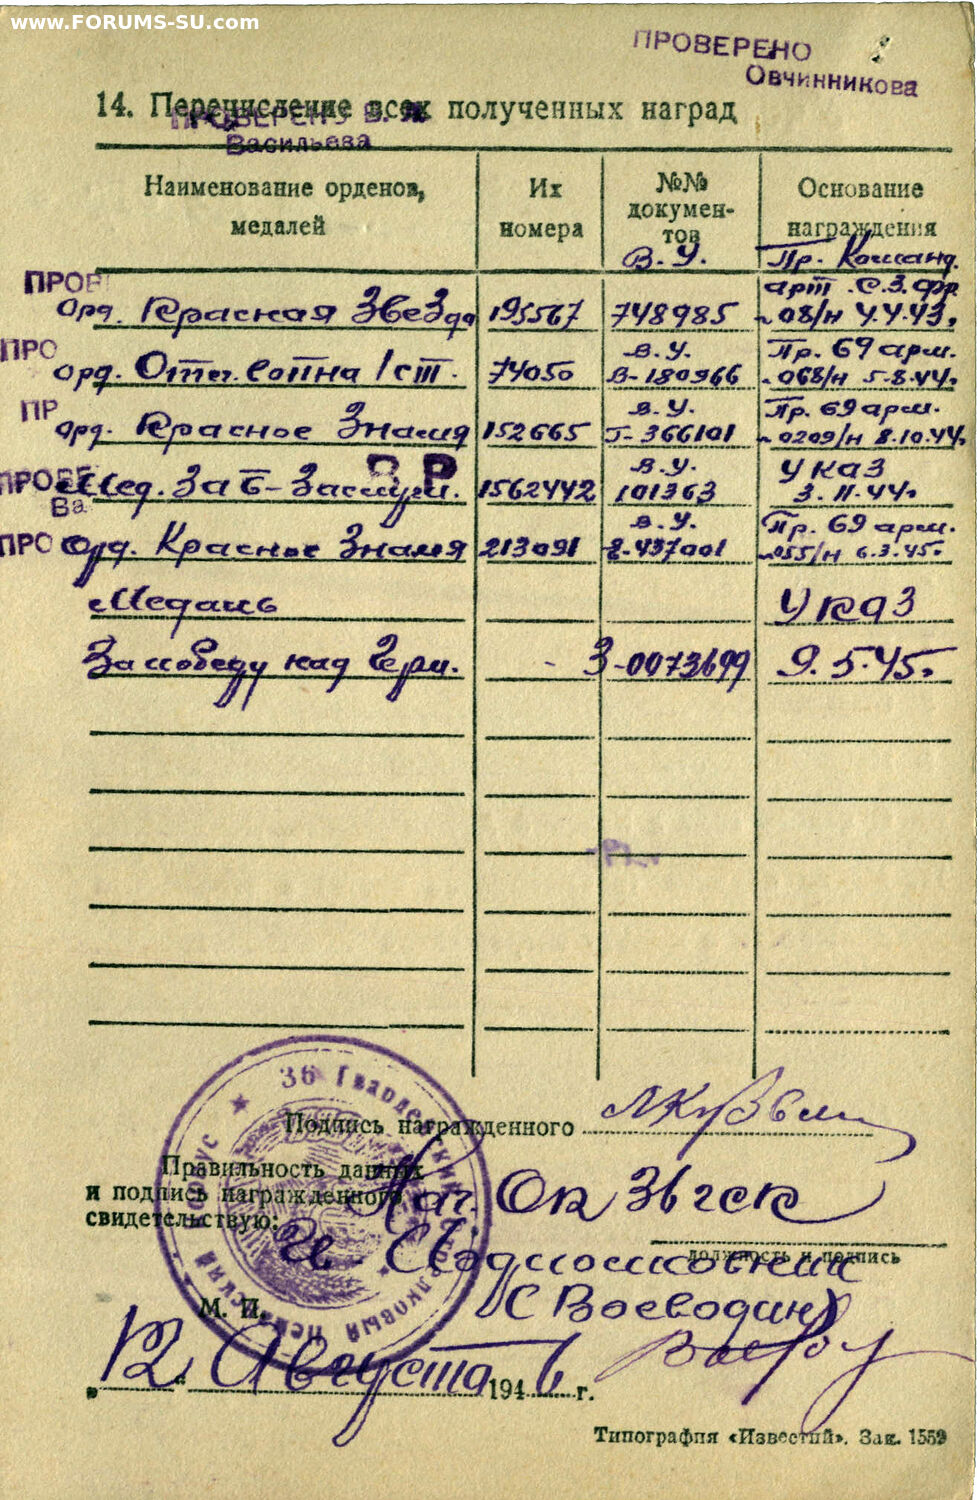 www.FORUMS-SU.com
ПРОВЕРЕНО
Овчинникова
14. Перечисление всех полученных наград
ПРОВЕРЕНО
Васильева
Наименование орденов, медалей
Их номера
№№ документов
Основание награждения
ПРОВЕ
Орд. Красная Звезда 195567 В.У. 748985 Пр. Команд. арт. С.З.Фр. 08/н 4.4.43г
ПРО
Орд. Отеч. война 1 ст. 74050 В.У. В-180966 Пр. 69 арм. 068/н 5.8.44г
ПР
Орд. Красное Знамя 152665 В.У. Г-366101 Пр. 69 арм. 0209/н 8.10.44г
ПРОВЕ
Ва
Мед. За Б- Заслуги. 1562442 В.У. 101363 Указ 3.11.44г
ПРО
Орд. Красное Знамя 213091 В.У. 437001 Пр. 69 арм. 055/н 6.3.45г
Медаль Указ
За победу над Герм. - З-0073699 9.5.45г
Подпись награжденного
Правильность данных
и подпись награжденного
свидетельствую:
Нач. ОК 36 гск
Гв. Подполковник
должность и подпись
(Воеводин)
М. П.
36 Гвардейский Стрелковый Корпус
„12“ Августа 1946 г.
Типография «Известий». Зак. 1559